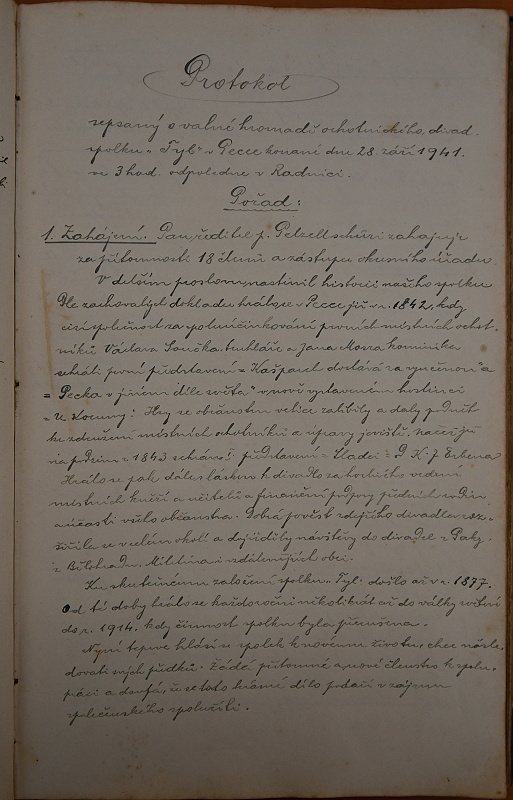 Protokol
sepsaný o valné hromadě ochotnického divad.
spolku „Tyl" v Pecce konané dne 28. září 1941.
ve 3 hod. odpoledne v Radnici.
Pořad:
1. Zahájení. Pan ředitel p. Pelzell schůzi zahajuje
za přítomnosti 18 členů a zástupce okresního úřadu.
V delším proslovu nastínil historii našeho spolku
Dle zachovalých dokladů hrálo se v Pecce již v r. 1842, kdy
cizí společnost za spoluúčinkování prvních místních ochot-
níků Václava Součka truhláře a Jana Mosra kominíka
sehráli první představení = Kašpárek dostává za vyučenou a
= Pecka v jiném díle světa" v nově vystaveném hostinci
„U Koruny: Hry se občanstvu velice zalíbily a daly podnět
ke sdružení místních ochotníků a úpravy jeviště, načež již
na podzim r. 1843 sehráno I. představení = Zládci = P. K. J. Erbena
Hrálo se pak dále s láskou k divadlu za horlivého vedení
místních kněží a učitelů a finanční podpory předních rodin
a účasti všeho občanstva. Dobrá pověst zdejšího divadla roz-
šířila se v celém okolí a dojížděly návštěvy do divadel z Paky,
z Bělohradu, Miletína i vzdálenějších obcí.
Ku skutečnému založení spolku „Tyl" došlo až v r. 1877.
Od té doby hrálo se každoročně několikrát až do války světové
do r. 1914. kdy činnost spolku byla přerušena.
Nyní teprve hlásí se spolek k novému životu, chce násle-
dovati svých předků. Žádá přítomné a nové členstvo k spolu-
práci a doufá, že se toto krásné dílo podaří v zájmu
společenského spolužití.